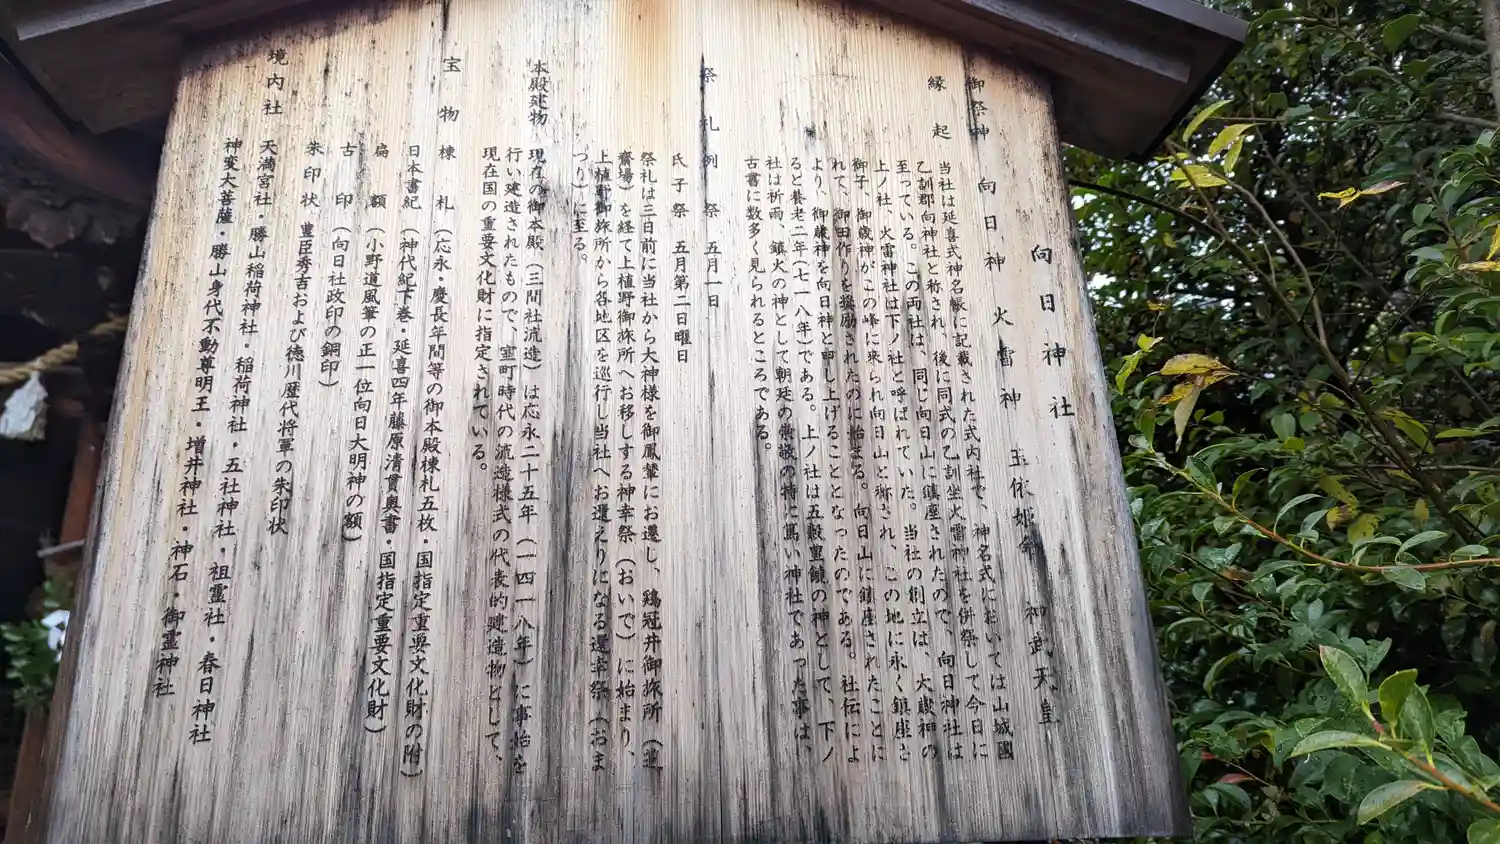 向日神社
御祭神 向日神 火雷神 玉依姫命 神武天皇
縁起 当社は延喜式神名帳に記載された式内社で、神名式においては山城國
乙訓郡向神社と称され、後に同式の乙訓坐火雷神社を併祭して今日に
至っている。この両社は、同じ向日山に鎮座されたので、向日神社は
上ノ社、火雷神社は下ノ社と呼ばれていた。当社の創立は、大歳神の
御子、御歳神がこの峰に来られ向日山と称され、この地に永く鎮座さ
れて、御田作りを奨励されたのに始まる。向日山に鎮座されたことに
より、御歳神を向日神と申し上げることとなったのである。社伝によ
ると養老二年(七一八年)である。上ノ社は五穀豊饒の神として、下ノ
社は祈雨、鎮火の神として朝廷の崇敬の特に篤い神社であった事は、
古書に数多く見られるところである。
祭礼 例祭 五月一日
氏子祭 五月第二日曜日
祭礼は三日前に当社から大神様を御鳳輦にお遷し、鶏冠井御旅所(遊
齋場)を経て上植野御旅所へお移しする神幸祭(おいで)に始まり、
上植野御旅所から各地区を巡行し当社へお還えりになる還幸祭(おま
つり)に至る。
本殿建物 現在の御本殿(三間社流造)は応永二十五年(一四一八年)に事始を
行い建造されたもので、室町時代の流造様式の代表的建造物として、
現在国の重要文化財に指定されている。
宝物 棟札(応永・慶長年間等の御本殿棟札五枚・国指定重要文化財の附)
日本書紀(神代紀下巻・延喜四年藤原清貫奥書・国指定重要文化財)
扁額(小野道風筆の正一位向日大明神の額)
古印(向日社政印の銅印)
朱印状 豊臣秀吉および徳川歴代将軍の朱印状
境内社 天満宮社・勝山稲荷神社・稲荷神社・五社神社・祖霊社・春日神社
神変大菩薩・勝山身代不動尊明王・増井神社・神石・御霊神社